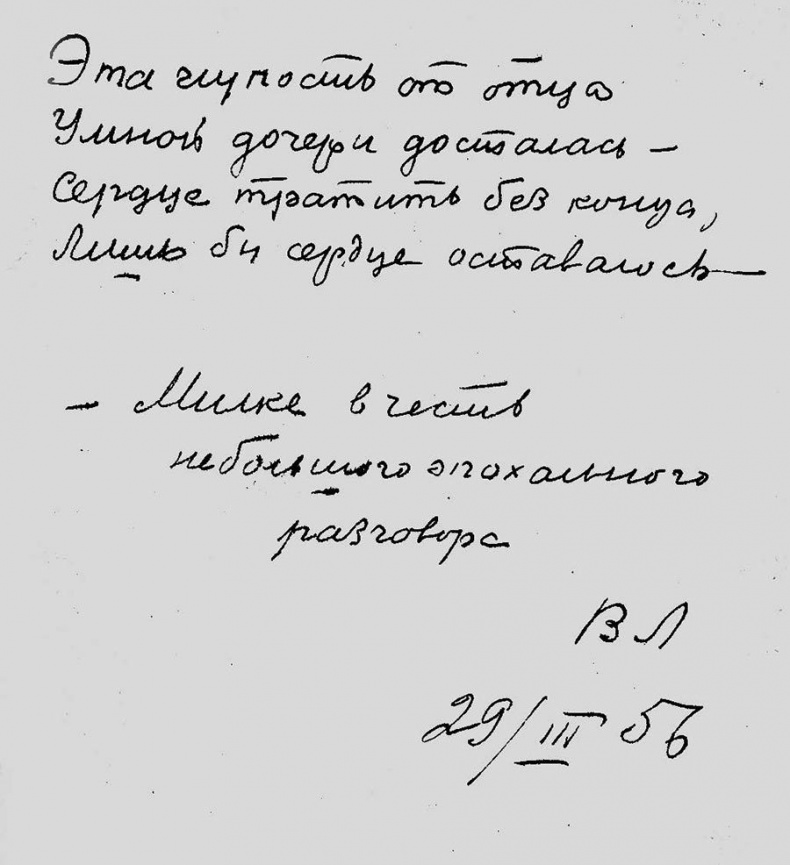 Эта глупость от отца
Умной дочери досталась —
Сердце тратить без конца,
Лишь бы сердце оставалось —
— Милке в честь
небольшого эпохального
разговора
ВЛ
29/III 56